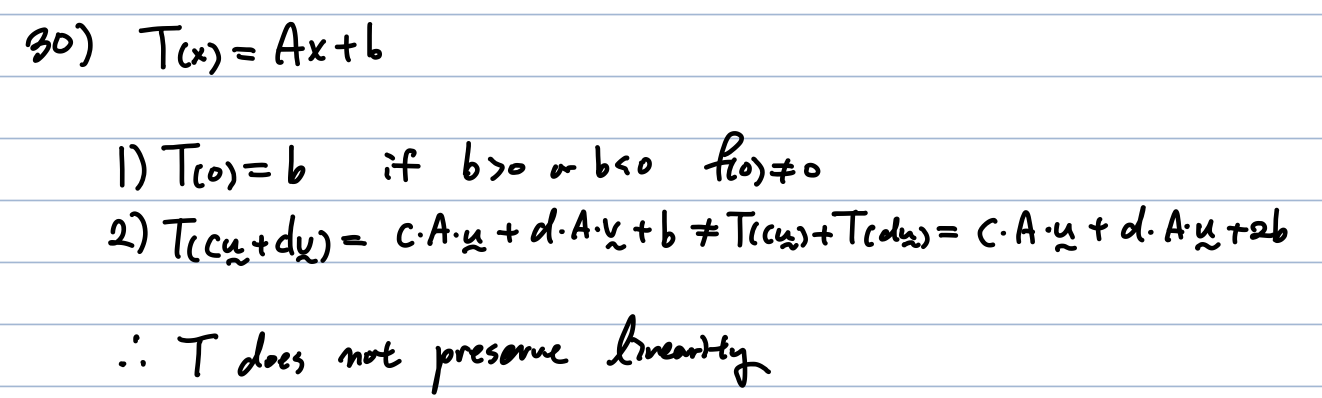 30) T(x) = Ax + b
1) T(0) = b if b>0 or b<0 f(0) ≠ 0
2) T(cu + dv) = c·A·u + d·A·v + b ≠ T(cu) + T(du) = c·A·u + d·A·u + 2b
∴ T does not preserve linearity